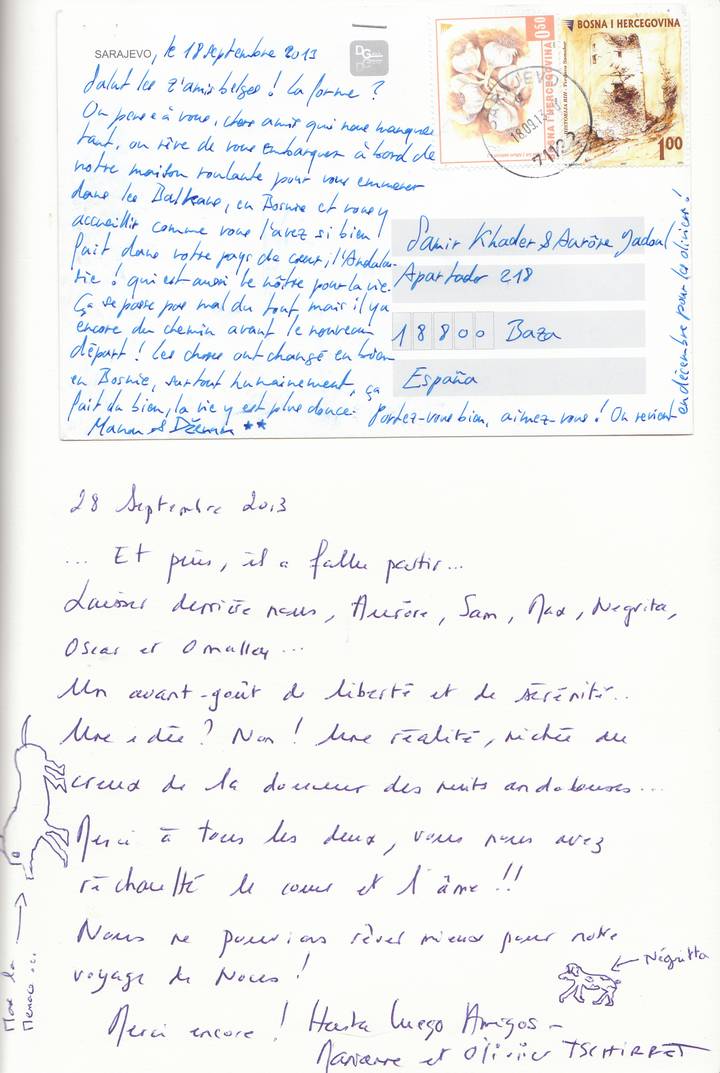 SARAJEVO, le 18 septembre 2013
DG
BOSNA I HERCEGOVINA
0,50
BOSNA I HERCEGOVINA
1.00
SARAJEVO
18.09.13
71122
Salut les z'amis belges ! La forme ?
On pense à vous, chers amis qui nous manquez
tant, on rêve de vous embarquer à bord de
notre maison roulante pour vous emmener
dans les Balkans, en Bosnie et vous y
accueillir comme vous l'avez si bien
fait dans votre pays de cœur, l'Andalou-
sie ! qui est aussi le nôtre pour la vie.
Ça se passe pas mal du tout mais il y a
encore du chemin avant le nouveau
départ ! Les choses ont changé en bien
en Bosnie, surtout humainement, ça
fait du bien, la vie y est plus douce. Portez-vous bien, aimez-vous ! On revient
en décembre pour les oliviers !
Manon & Dženan **
Samir Khader & Aurore Jadoul
Apartado 218
18800 Baza
España
28 Septembre 2013
... Et puis, il a fallu partir...
Laisser derrière nous, Aurore, Sam, Max, Negrita,
Oscar et Omalley...
Un avant-goût de liberté et de sérénité..
Une idée ? Non ! Une réalité, nichée au
creux de la douceur des nuits andalouses...
Merci à tous les deux, vous nous avez
réchauffé le cœur et l'âme !!
Nous ne pouvions rêver mieux pour notre
voyage de Noces !
Négritta
Merci encore ! Hasta luego Amigos -
Marianne et Olivier TSCHIRRET
Max la